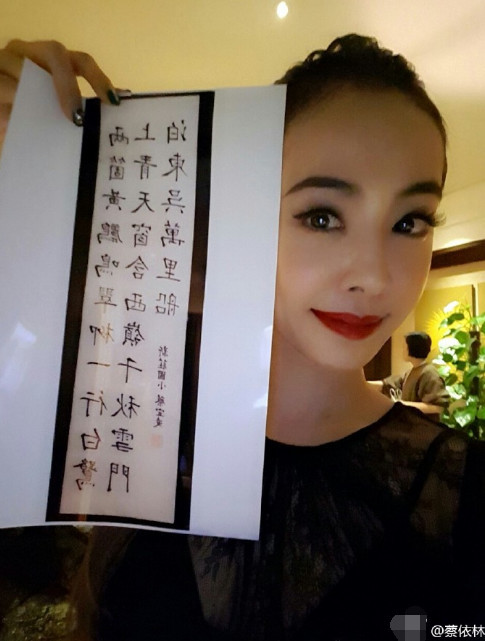 兩箇黃鸝鳴翠柳一行白鷺
上青天窗含西嶺千秋雪門
泊東吳萬里船
新莊國小 蔡宜凌
@蔡依林